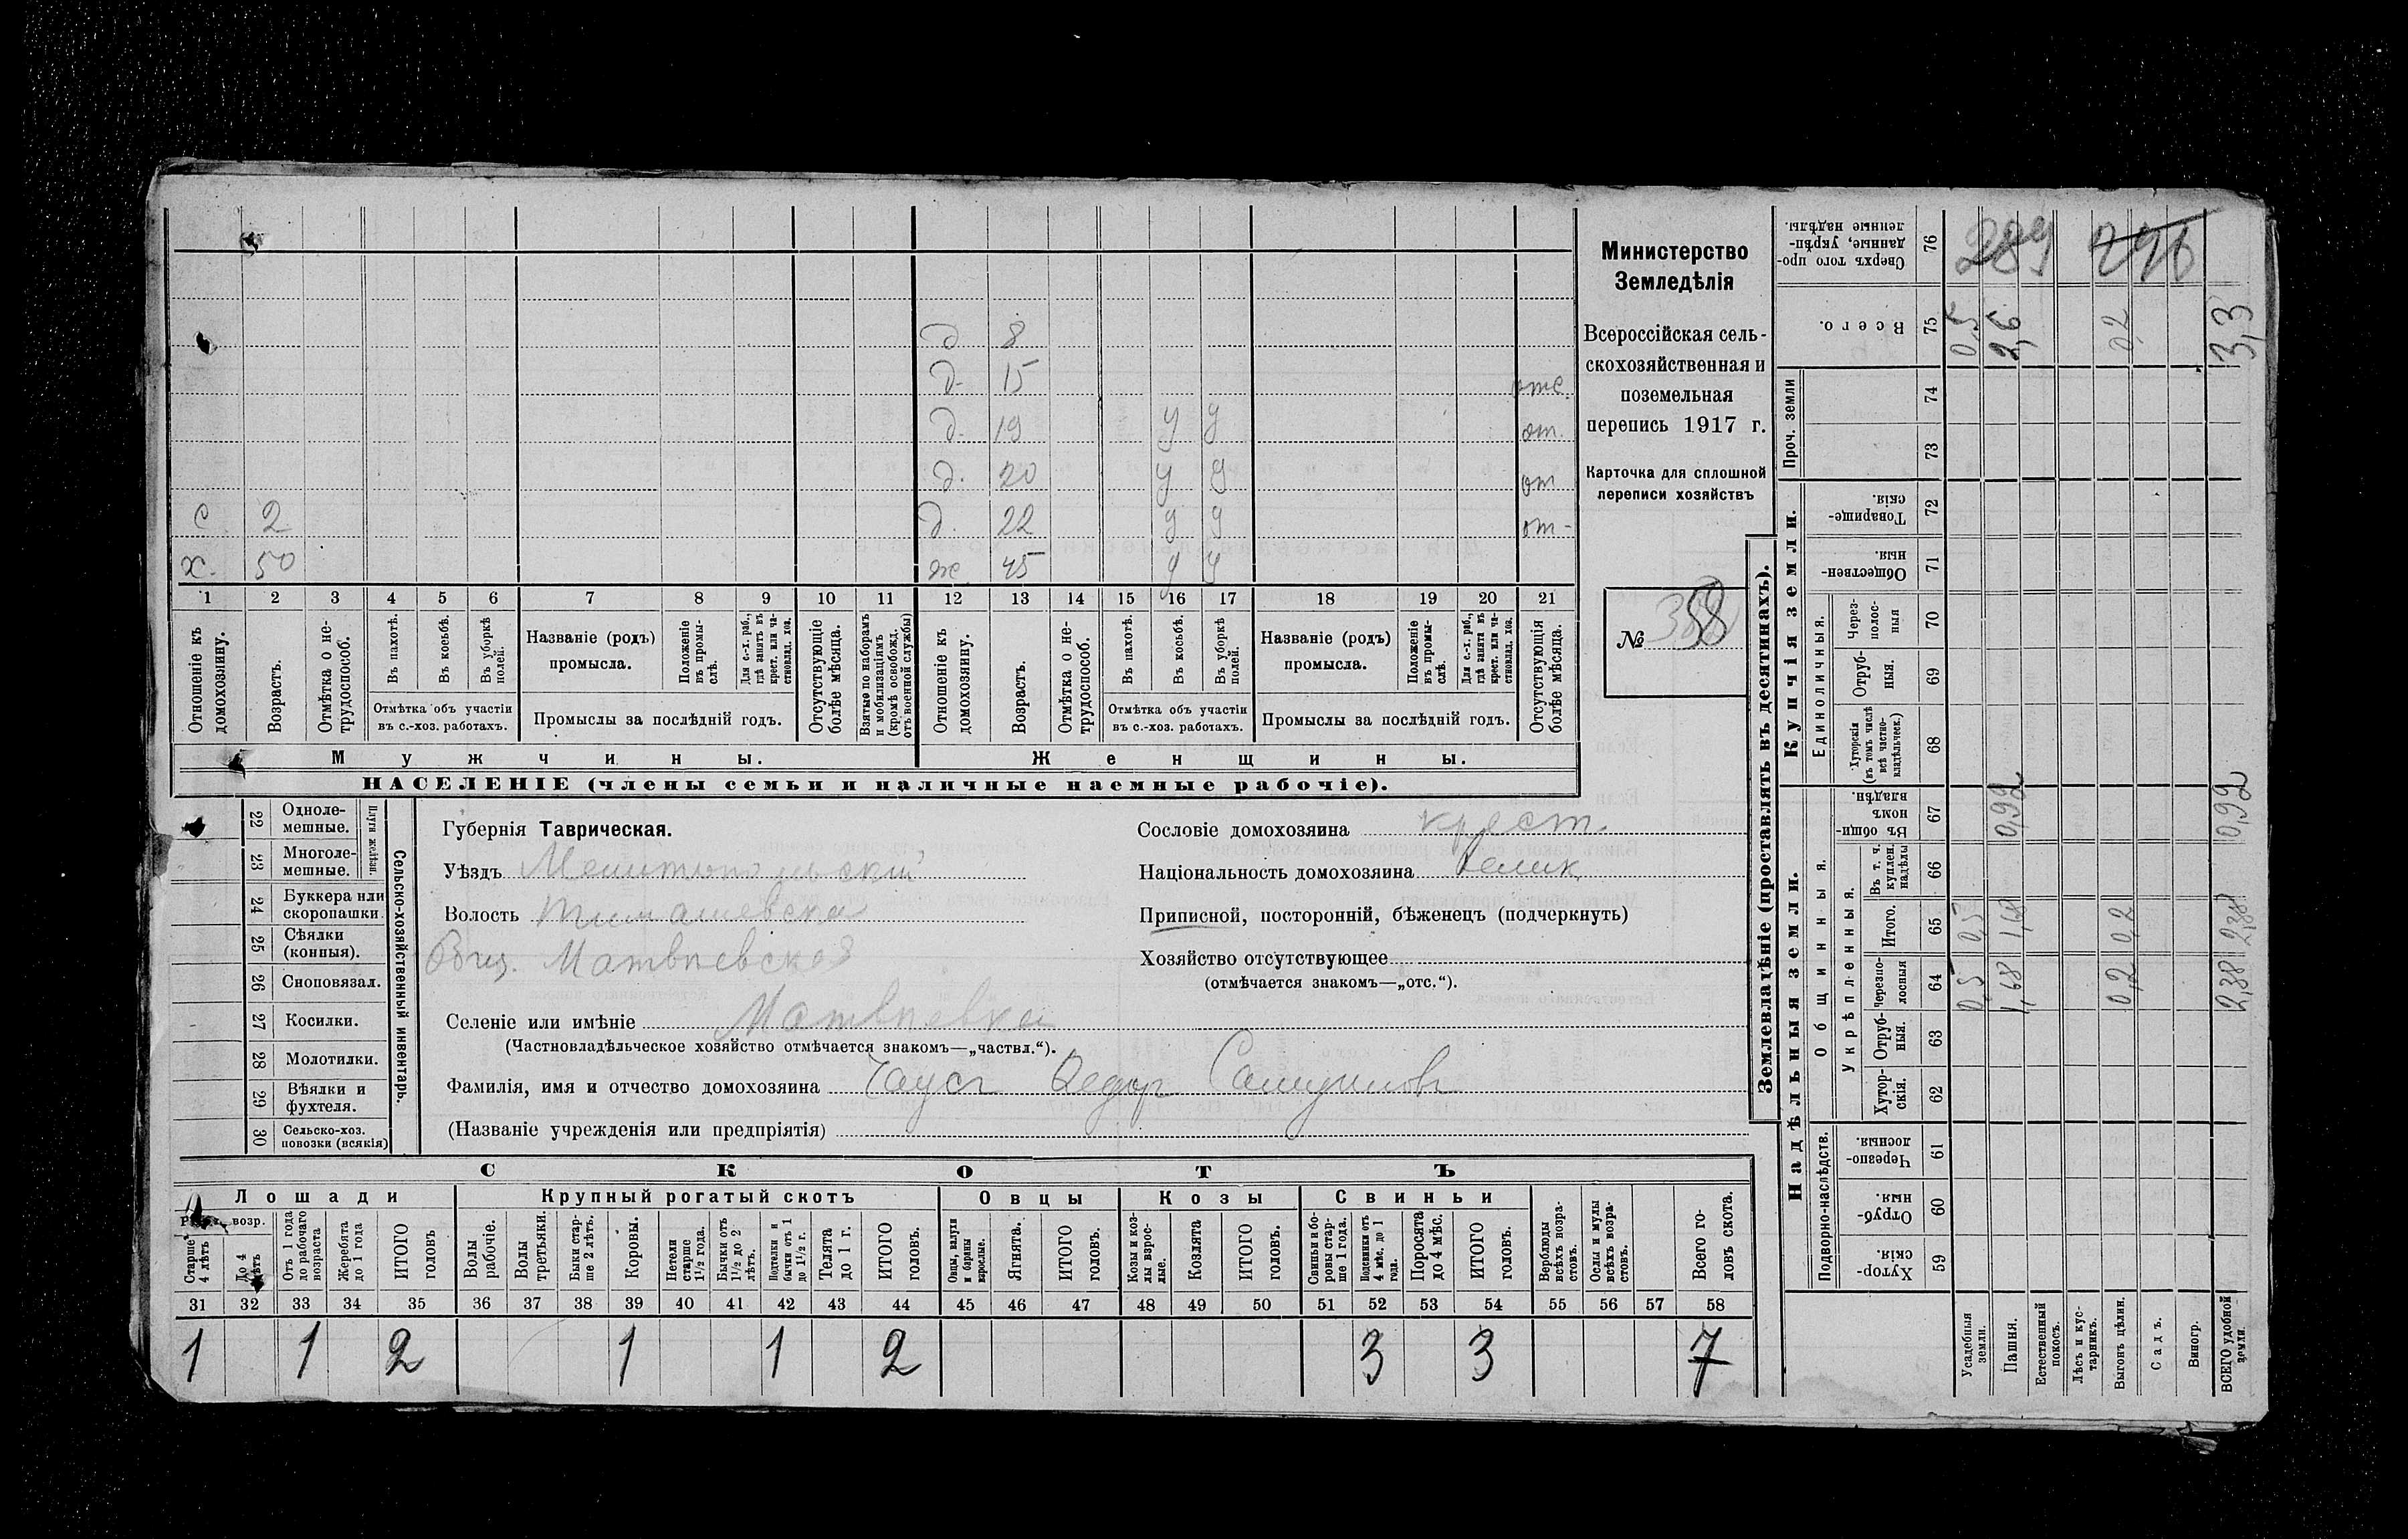 Министерство
Земледѣлія
Всероссійская сель-
скохозяйственная и
поземельная
перепись 1917 г.
Карточка для сплошной
переписи хозяйствъ
№ 38
д 8
д. 15 отс.
д. 19 у у от.
д. 20 у у от
с 2 д. 22 у у от-
х. 50 ж. 45 у у
1 2 3 4 5 6 7 8 9 10 11 12 13 14 15 16 17 18 19 20 21
Отношеніе къ домохозяину.
Возрастъ.
Отмѣтка о не-трудоспособ.
Въ пахотѣ.
Въ косьбѣ.
Въ уборкѣ полей.
Отмѣтка объ участіи въ с.-хоз. работахъ.
Названіе (родъ) промысла.
Положеніе въ промы-слѣ.
Для с.-х. раб., гдѣ занятъ въ крест. или ча-стновлад. хоз.
Промыслы за послѣдній годъ.
Отсутствующіе болѣе мѣсяца.
Взятые по наборамъ и мобилизаціямъ (кромѣ освобожд. отъ военной службы)
Отношеніе къ домохозяину.
Возрастъ.
Отмѣтка о не-трудоспособ.
Въ пахотѣ.
Въ косьбѣ.
Въ уборкѣ полей.
Отмѣтка объ участіи въ с.-хоз. работахъ.
Названіе (родъ) промысла.
Положеніе въ промы-слѣ.
Для с.-х. раб., гдѣ занята въ крест. или ча-стновлад. хоз.
Промыслы за послѣдній годъ.
Отсутствующія болѣе мѣсяца.
Мужчины. Женщины.
НАСЕЛЕНІЕ (члены семьи и наличные наемные рабочіе).
Сельско-хозяйственный инвентарь.
Плуги желѣзн.
22 Одноле-мешные.
23 Многоле-мешные.
24 Буккера или скоропашки.
25 Сѣялки (конныя).
26 Сноповязал.
27 Косилки.
28 Молотилки.
29 Вѣялки и фухтеля.
30 Сельско-хоз. повозки (всякія)
Губернія Таврическая.
Уѣздъ Мелитопольскій
Волость Тимашевская
Общ. Матвѣевское
Селеніе или имѣніе Матвѣевка
(Частновладѣльческое хозяйство отмѣчается знакомъ—„частвл.“).
Фамилія, имя и отчество домохозяина Чаусъ Федоръ
(Названіе учрежденія или предпріятія)
Сословіе домохозяина крест.
Національность домохозяина велик
Приписной, посторонній, бѣженецъ (подчеркнуть)
Хозяйство отсутствующее
(отмѣчается знакомъ—„отс.“).
СКОТЪ
Лошади Крупный рогатый скотъ Овцы Козы Свиньи
Старше 4 лѣтъ
До 4 лѣтъ
Отъ 1 года до рабочаго возраста
Жеребята до 1 года
ИТОГО головъ
Волы рабочіе.
Волы третьяки.
Быки стар-ше 2 лѣтъ.
Коровы.
Нетели старше 1½ года.
Бычки отъ 1½ до 2 лѣтъ.
Подтелки и бычки отъ 1 до 1½ г.
Телята до 1 г.
ИТОГО головъ.
Овцы, валухи и бараны взрослые.
Ягнята.
ИТОГО головъ.
Козы и коз-лы взрос-лые.
Козлята
ИТОГО головъ.
Свиньи и бо-ровы стар-ше 1 года.
Подсвинки отъ 4 мѣс. до 1 года.
Поросята до 4 мѣс.
ИТОГО головъ.
Верблюды всѣхъ возра-стовъ.
Ослы и мулы всѣхъ возра-стовъ.
Всего го-ловъ скота.
31 32 33 34 35 36 37 38 39 40 41 42 43 44 45 46 47 48 49 50 51 52 53 54 55 56 57 58
1 1 2 1 1 2 3 3 7
Землевладѣніе (проставлять въ десятинахъ).
Надѣльныя земли. Купчія земли. Проч. земли
Подворно-наслѣдств. Общинныя. Единоличныя.
Укрѣпленныя.
59 Хутор-скія.
60 Отруб-ныя.
61 Черезпо-лосныя.
62 Хутор-скія.
63 Отруб-ныя.
64 Черезпо-лосныя
65 Итого.
66 Въ т. ч. куплен. надѣлы
67 Въ общи-номъ владѣн.
68 Хуторскія (въ томъ числѣ всѣ частно-владѣльческ.)
69 Отруб-ныя.
70 Через-полос-ныя
71 Обществен-ныя.
72 Товарище-скія.
73
74
75 Всего.
76 Сверхъ того про-данные, укрѣп-ленные надѣлы.
Усадебныя земли. 0,5 0,5 0,5
Пашня. 1,68 1,68 0,92 2,6
Естественный покосъ.
Лѣсъ и кус-тарникъ.
Выгонъ цѣлин. 0,2 0,2 0,2
Садъ.
Виногр.
ВСЕГО удобной земли. 2,38 2,38 0,92 3,3
289 296